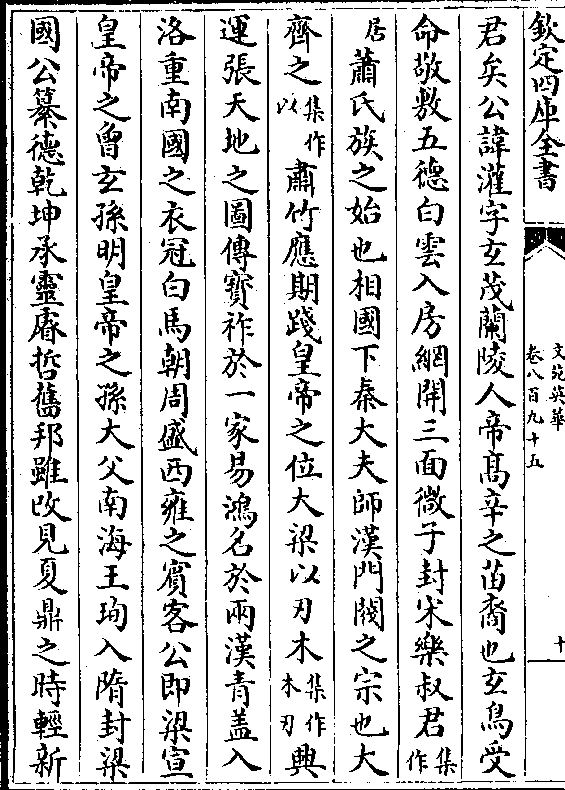 欽定四庫全書
文苑英華
卷八百九十五
十
君矣公諱灌字玄茂蘭陵人帝髙辛之苗裔也玄鳥受
命敬敷五德白雲入房網開三面微子封宋樂叔君集作
居蕭氏族之始也相國下秦大夫師漢門閥之宗也大
齊之集作以肅竹應期踐皇帝之位大梁以刃木集作木刃興
運張天地之圖傳寳祚於一家易鴻名於兩漢青盖入
洛重南國之衣冠白馬朝周盛西雍之賓客公即梁宣
皇帝之曾玄孫明皇帝之孫大父南海王珣入隋封梁
國公纂德乾坤承靈睿哲舊邦雖改見夏鼎之時輕新